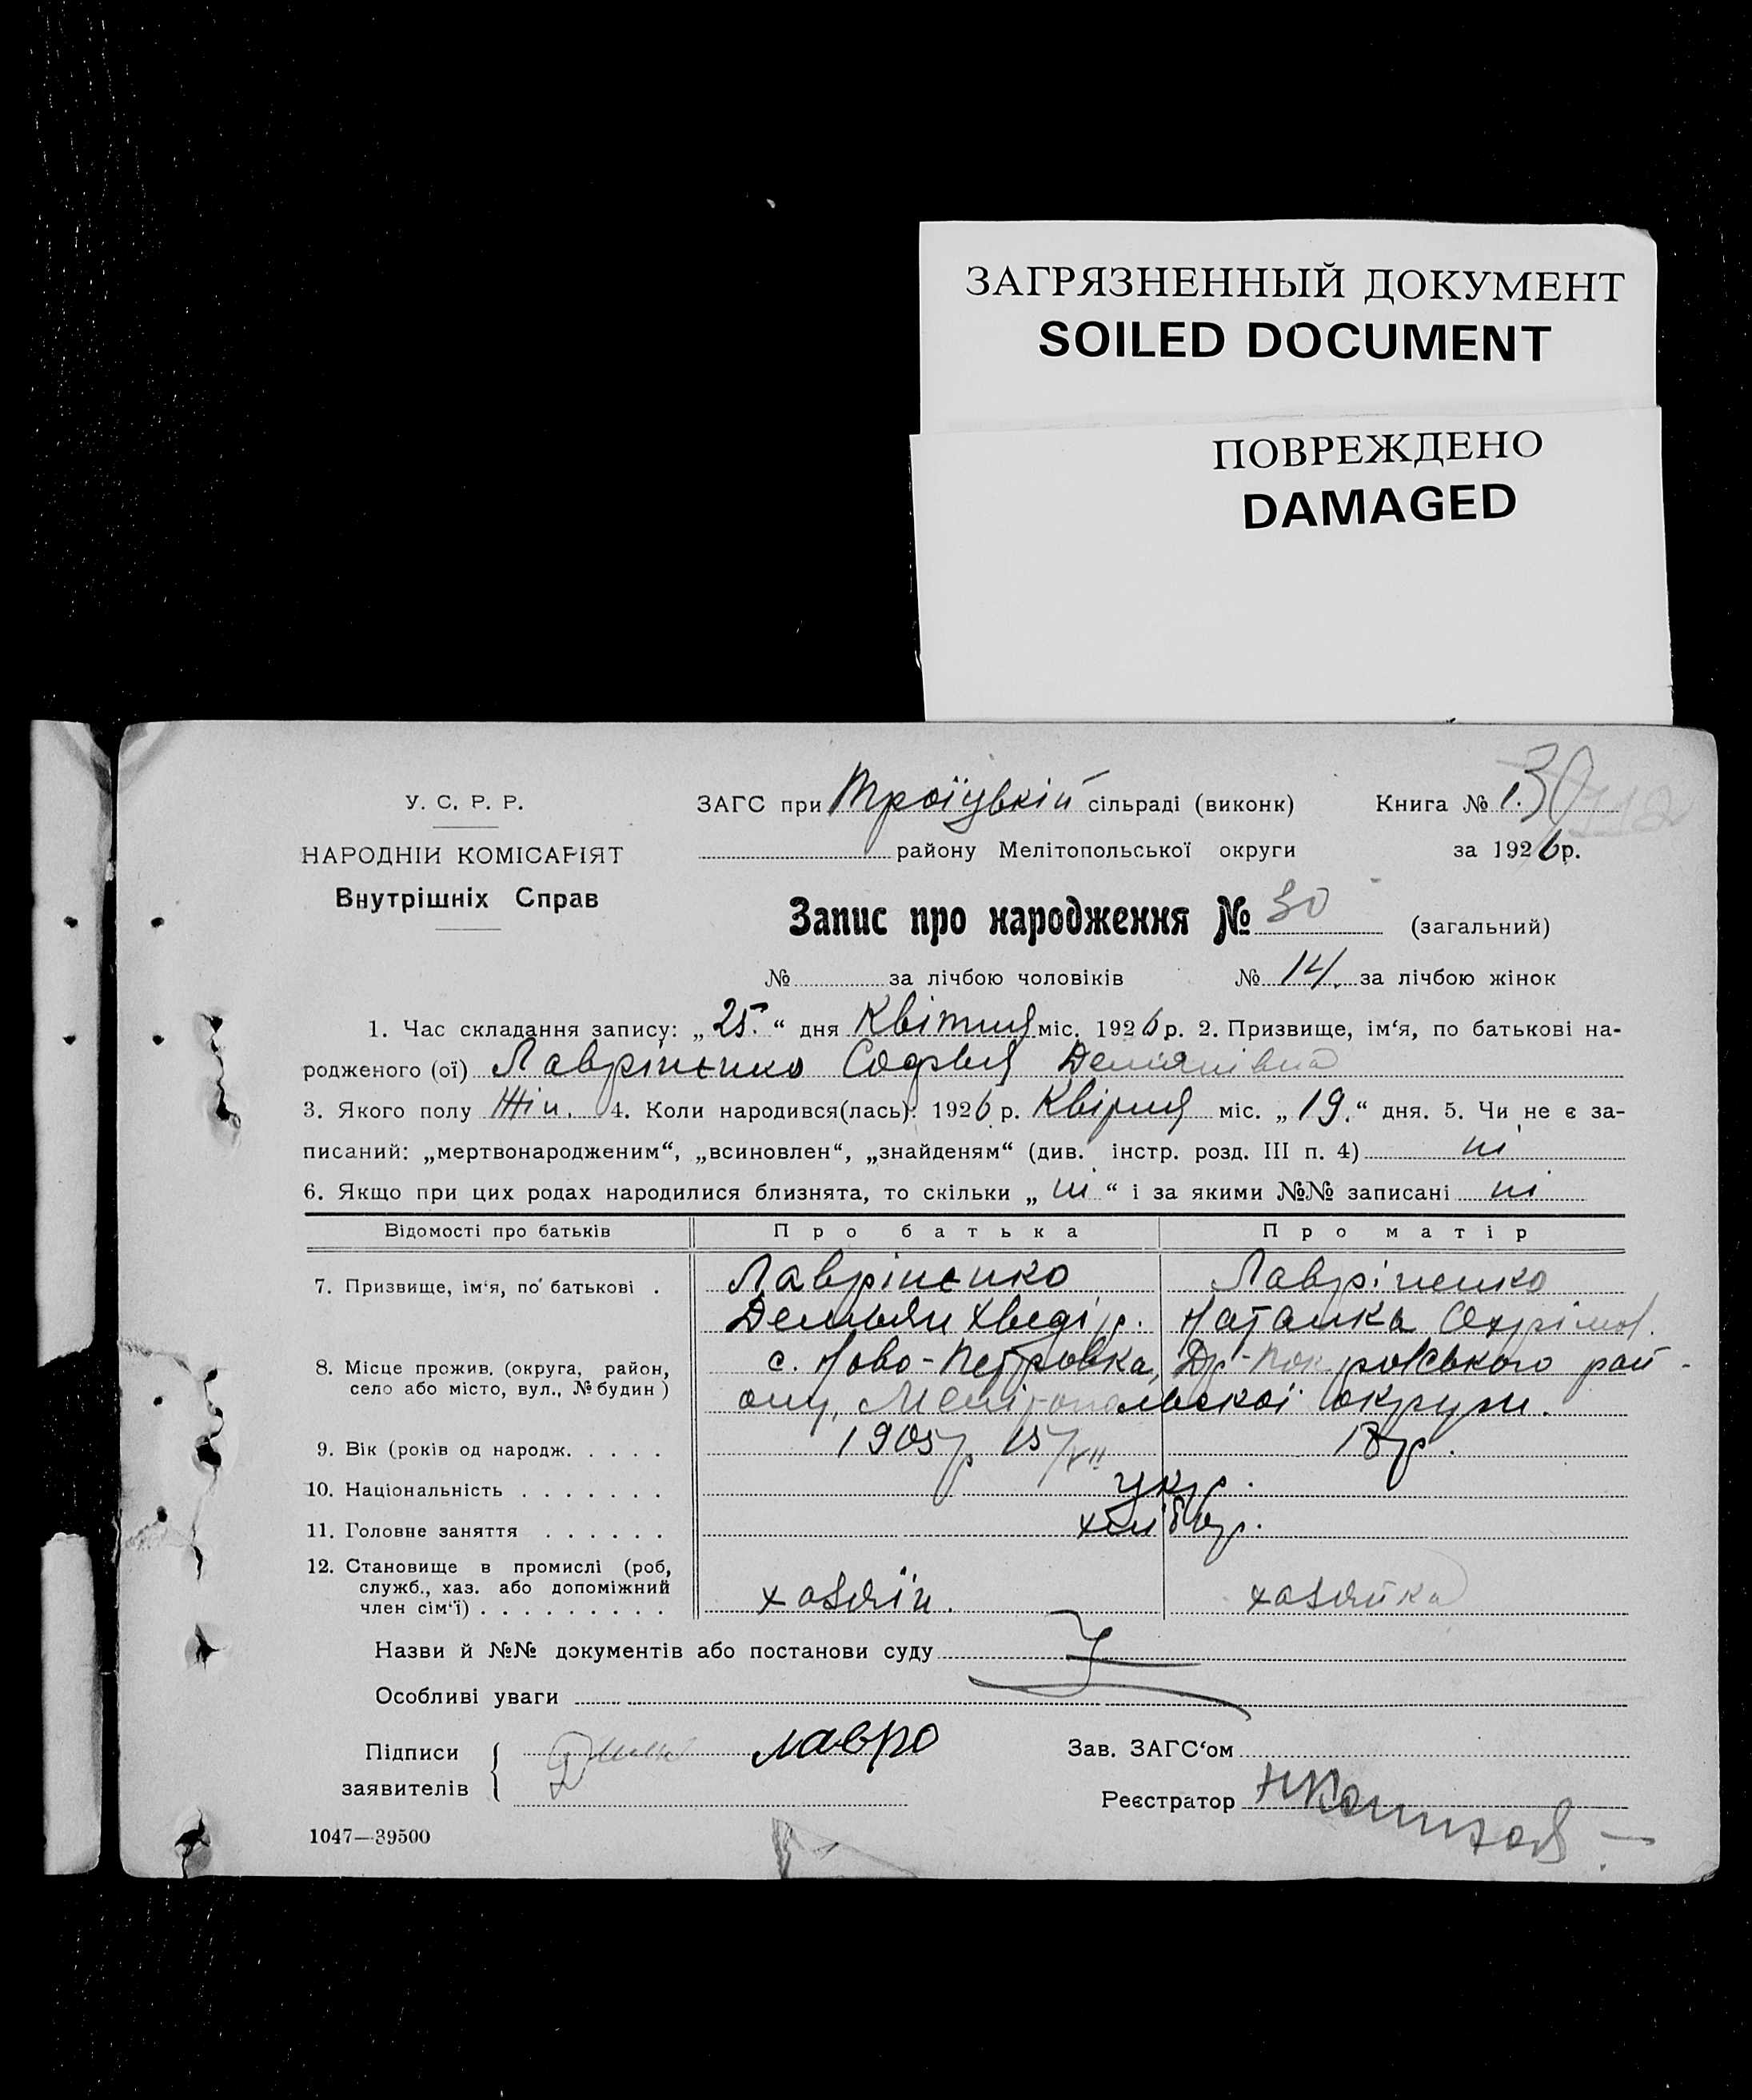 ЗАГРЯЗНЕННЫЙ ДОКУМЕНТ
SOILED DOCUMENT
ПОВРЕЖДЕНО
DAMAGED
У. С. Р. Р.
НАРОДНІЙ КОМІСАРІЯТ
Внутрішніх Справ
ЗАГС при Троїцькій сільраді (виконк) Книга № 1. 30
району Мелітопольської округи за 1926 р.
Запис про народження № 30 (загальний)
№ за лічбою чоловіків № 14. за лічбою жінок
1. Час складання запису: „25“ дня Квітня міс. 1926 р. 2. Призвище, ім‘я, по батькові на-
родженого (ої) Лаврінєнко Софья Демянівна
3. Якого полу Жін. 4. Коли народився(лась): 1926 р. Квітня міс. „19.“ дня. 5. Чи не є за-
писаний: „мертвонародженим“, „всиновлен“, „знайденям“ (див. інстр. розд. III п. 4) ні
6. Якщо при цих родах народилися близнята, то скільки „ні“ і за якими №№ записані ні
Відомості про батьків Про батька Про матір
7. Призвище, ім‘я, по батькові . Лаврінєнко Лавріненко
Демьян Хведір. Наталка Охрімов.
8. Місце прожив. (округа, район, село або місто, вул., № будин) с. Ново-Петровка, Др-Покровського рай-
ону, Мелітопольскої округи.
9. Вік (років од народж. . . . . 1905 р. 15/VII 18 р.
10. Національність . . . . . . . укр.
11. Головне заняття . . . . . . хлібор.
12. Становище в промислі (роб,
служб., хаз. або допоміжний
член сім‘ї) . . . . . . . . . хазяїн. хазяйка
Назви й №№ документів або постанови суду
Особливі уваги
Підписи
заявителів лавро
Зав. ЗАГС‘ом
Реєстратор
1047—39500